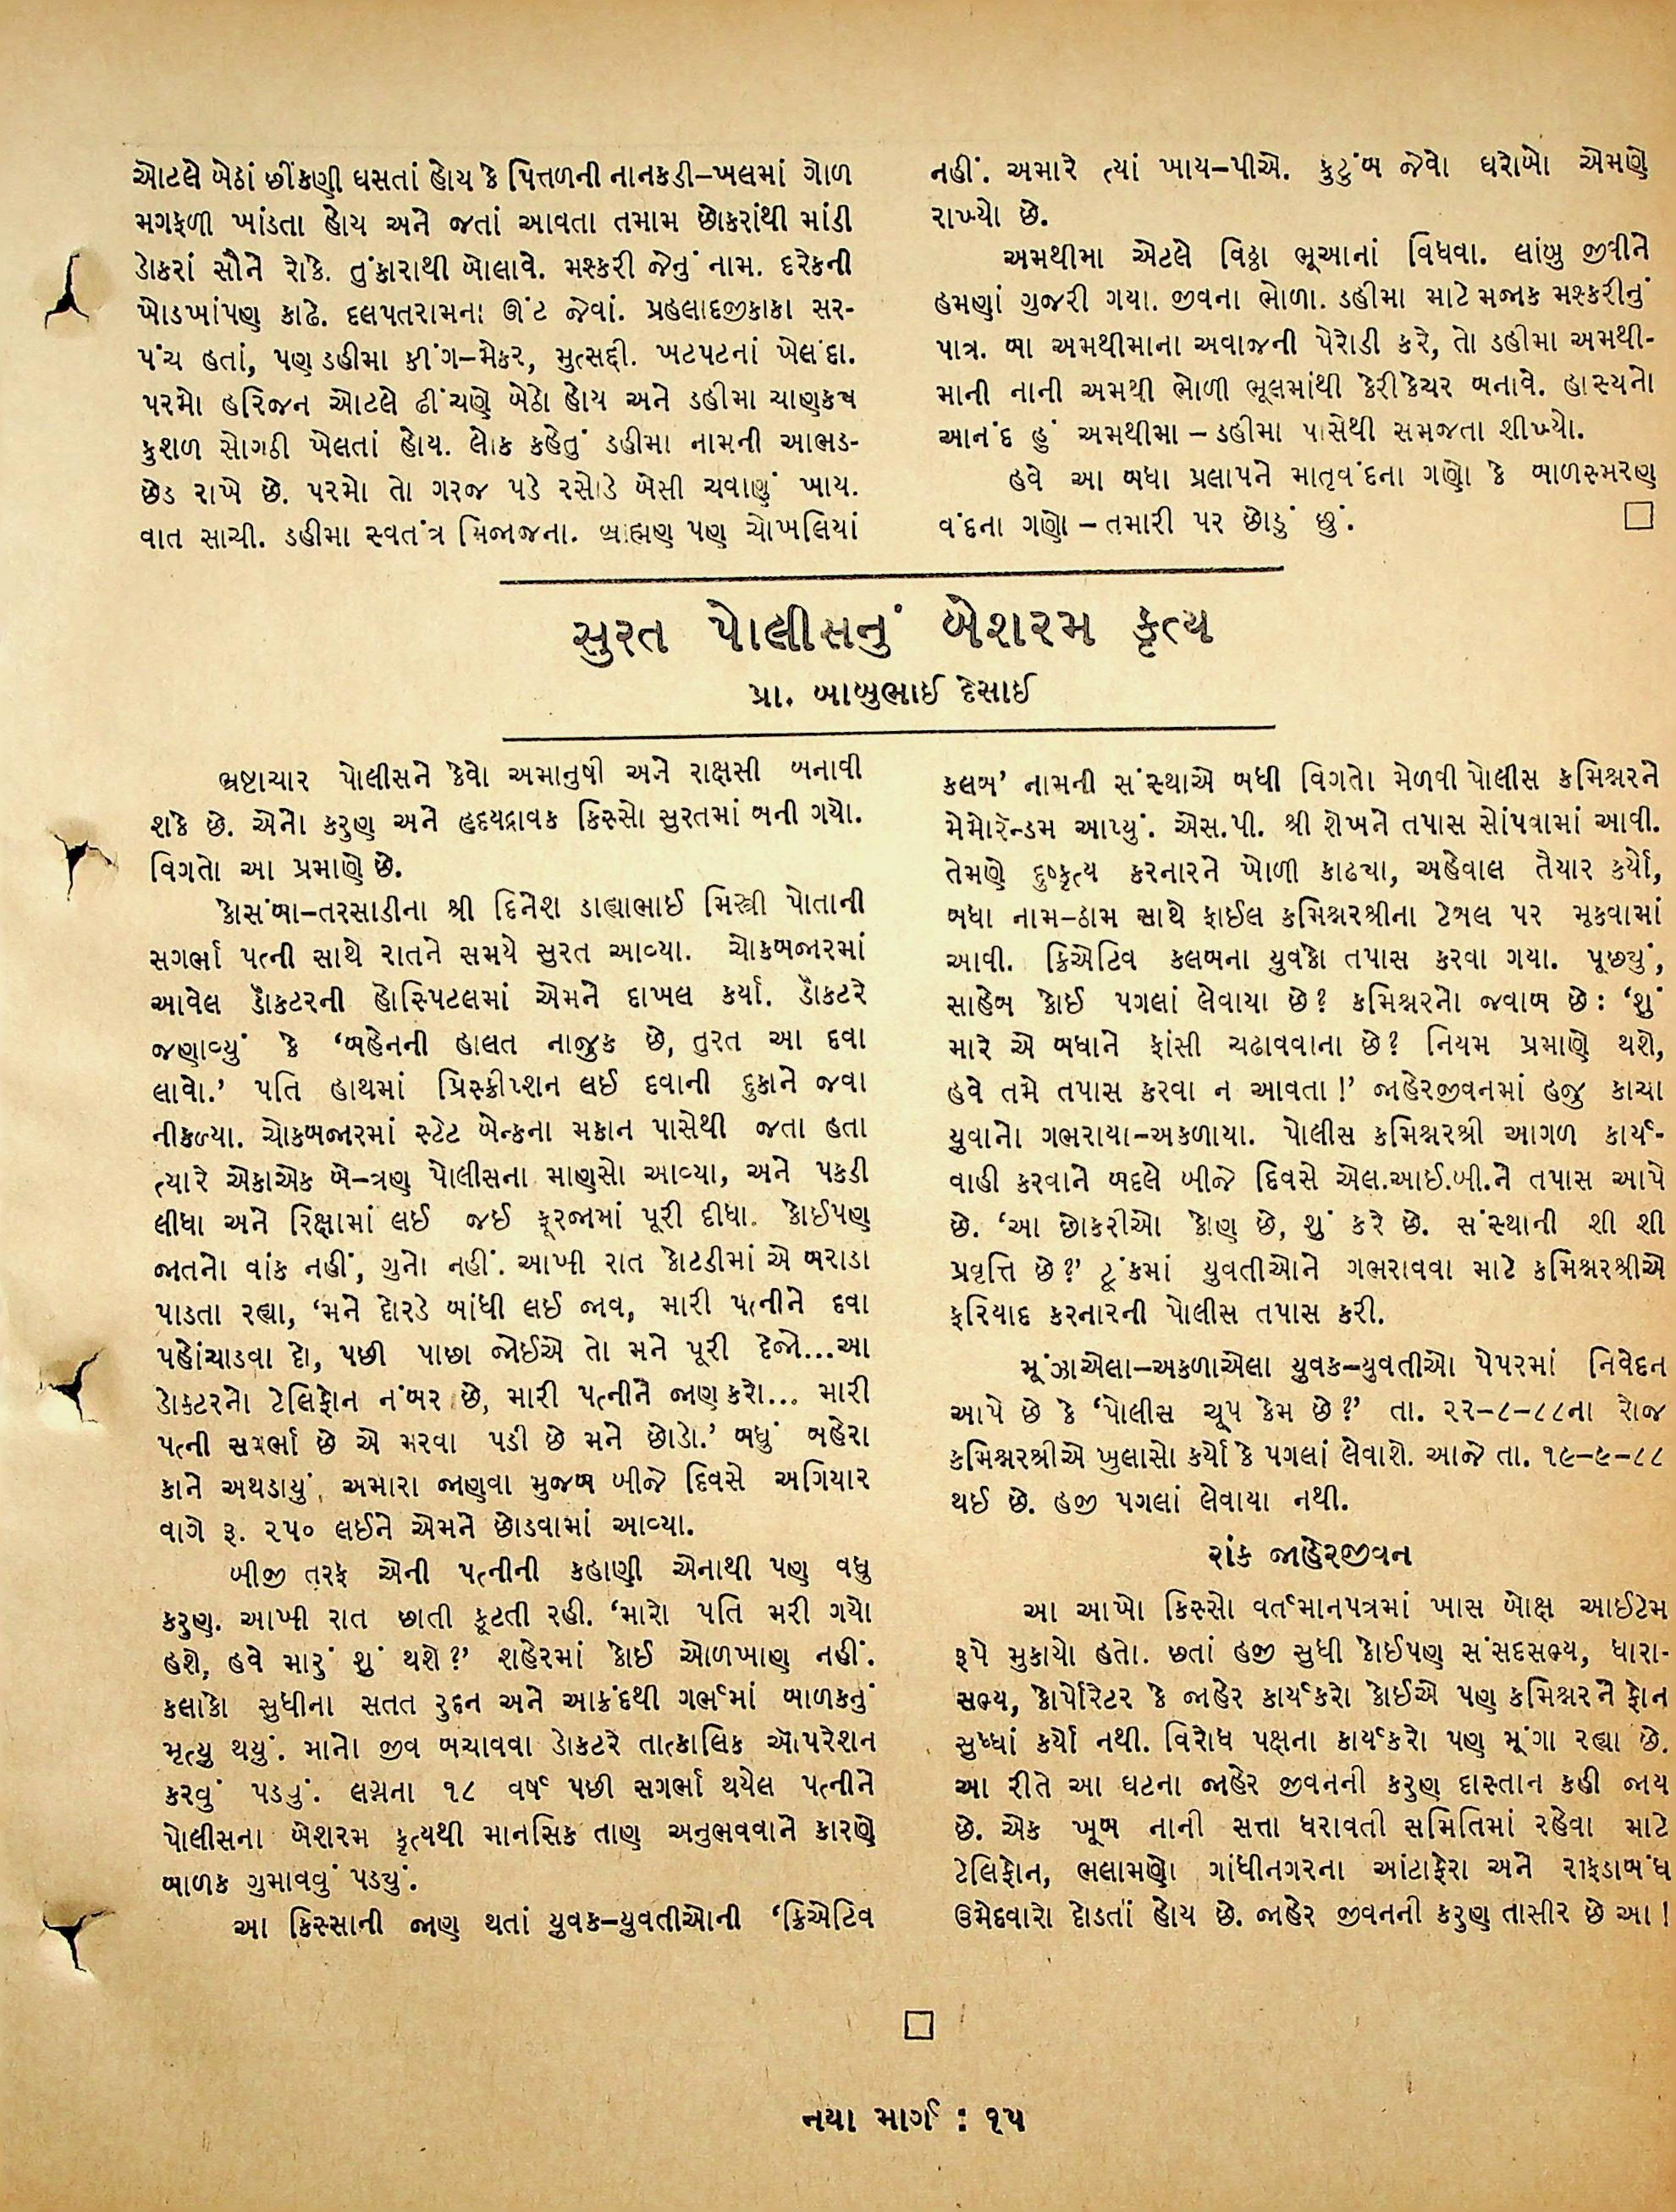 ઓટલે બેઠાં છીંકણી ઘસતાં હોય કે પિત્તળની નાનકડી-ખલમાં ગોળ
મગફળી ખાંડતા હોય અને જતાં આવતા તમામ છોકરાંથી માંડી
ડોકરાં સૌને રોકે. તુંકારાથી બોલાવે. મશ્કરી જેનું નામ. દરેકની
ખોડખાંપણ કાઢે. દલપતરામના ઊંટ જેવાં. પ્રહલાદજીકાકા સર-
પંચ હતાં, પણ ડહીમા કીંગ-મેકર, મુત્સદ્દી. ખટપટનાં ખેલંદા.
પરમો હરિજન ઓટલે ઢીંચણે બેઠો હોય અને ડહીમા ચાણક્ય
કુશળ સોગઠી ખેલતાં હોય. લોક કહેતું ડહીમા નામની આભડ-
છેડ રાખે છે. પરમો તો ગરજ પડે રસોડે બેસી ચવાણું ખાય.
વાત સાચી. ડહીમા સ્વતંત્ર મિજાજના. બ્રાહ્મણ પણ ચોખલિયાં
નહીં. અમારે ત્યાં ખાય-પીએ. કુટુંબ જેવો ઘરોબો એમણે
રાખ્યો છે.
અમથીમા એટલે વિઠ્ઠા ભૂઆનાં વિધવા. લાંબુ જીવીને
હમણાં ગુજરી ગયા. જીવના ભોળા. ડહીમા માટે મજાક મશ્કરીનું
પાત્ર. બા અમથીમાના અવાજની પેરોડી કરે, તો ડહીમા અમથી-
માની નાની અમથી ભોળી ભૂલમાંથી કેરીકેચર બનાવે. હાસ્યનો
આનંદ હું અમથીમા - ડહીમા પાસેથી સમજતા શીખ્યો.
હવે આ બધા પ્રલાપને માતૃવંદના ગણો કે બાળસ્મરણ
વંદના ગણો - તમારી પર છોડું છું.
સુરત પોલીસનું બેશરમ કૃત્ય
પ્રા. બાબુભાઈ દેસાઈ
ભ્રષ્ટાચાર પોલીસને કેવો અમાનુષી અને રાક્ષસી બનાવી
શકે છે. એનો કરુણ અને હૃદયદ્રાવક કિસ્સો સુરતમાં બની ગયો.
વિગતો આ પ્રમાણે છે.
કોસંબા-તરસાડીના શ્રી દિનેશ ડાહ્યાભાઈ મિસ્ત્રી પોતાની
સગર્ભા પત્ની સાથે રાતને સમયે સુરત આવ્યા. ચોકબજારમાં
આવેલ ડૉકટરની હોસ્પિટલમાં એમને દાખલ કર્યા. ડૉકટરે
જણાવ્યું કે ‘બહેનની હાલત નાજુક છે, તુરત આ દવા
લાવો.’ પતિ હાથમાં પ્રિસ્ક્રીપ્શન લઈ દવાની દુકાને જવા
નીકળ્યા. ચોકબજારમાં સ્ટેટ બેન્કના મકાન પાસેથી જતા હતા
ત્યારે એકાએક બે-ત્રણ પોલીસના માણસો આવ્યા, અને પકડી
લીધા અને રિક્ષામાં લઈ જઈ કૂરજામાં પૂરી દીધા. કોઈપણ
જાતનો વાંક નહીં, ગુનો નહીં. આખી રાત કોટડીમાં એ બરાડા
પાડતા રહ્યા, ‘મને દોરડે બાંધી લઈ જાવ, મારી પત્નીને દવા
પહોંચાડવા દો, પછી પાછા જોઈએ તો મને પૂરી દેજો...આ
ડોકટરનો ટેલિફોન નંબર છે, મારી પત્નીને જાણ કરો... મારી
પત્ની સગર્ભા છે એ મરવા પડી છે મને છોડો.’ બધું બહેરા
કાને અથડાયું. અમારા જાણવા મુજબ બીજે દિવસે અગિયાર
વાગે રૂ. ૨૫૦ લઈને એમને છોડવામાં આવ્યા.
બીજી તરફ એની પત્નીની કહાણી એનાથી પણ વધુ
કરુણ. આખી રાત છાતી કૂટતી રહી. ‘મારો પતિ મરી ગયો
હશે, હવે મારું શું થશે?’ શહેરમાં કોઈ ઓળખાણ નહીં.
કલાકો સુધીના સતત રુદન અને આક્રંદથી ગર્ભમાં બાળકનું
મૃત્યુ થયું. માનો જીવ બચાવવા ડોકટરે તાત્કાલિક ઑપરેશન
કરવું પડ્યું. લગ્નના ૧૮ વર્ષ પછી સગર્ભા થયેલ પત્નીને
પોલીસના બેશરમ કૃત્યથી માનસિક તાણ અનુભવવાને કારણે
બાળક ગુમાવવું પડ્યું.
આ કિસ્સાની જાણ થતાં યુવક-યુવતીઓની ‘ક્રિએટિવ
કલબ’ નામની સંસ્થાએ બધી વિગતો મેળવી પોલીસ કમિશ્નરને
મેમોરૅન્ડમ આપ્યું. એસ.પી. શ્રી શેખને તપાસ સોંપવામાં આવી.
તેમણે દુષ્કૃત્ય કરનારને ખોળી કાઢ્યા, અહેવાલ તૈયાર કર્યો,
બધા નામ-ઠામ સાથે ફાઈલ કમિશ્નરશ્રીના ટેબલ પર મૂકવામાં
આવી. ક્રિએટિવ કલબના યુવકો તપાસ કરવા ગયા. પૂછ્યું,
સાહેબ કોઈ પગલાં લેવાયા છે? કમિશ્નરનો જવાબ છે: ‘શું
મારે એ બધાને ફાંસી ચઢાવવાના છે? નિયમ પ્રમાણે થશે,
હવે તમે તપાસ કરવા ન આવતા!’ જાહેરજીવનમાં હજુ કાચા
યુવાનો ગભરાયા-અકળાયા. પોલીસ કમિશ્નરશ્રી આગળ કાર્ય-
વાહી કરવાને બદલે બીજે દિવસે એલ.આઈ.બી.ને તપાસ આપે
છે. ‘આ છોકરીઓ કોણ છે, શું કરે છે. સંસ્થાની શી શી
પ્રવૃત્તિ છે?’ ટૂંકમાં યુવતીઓને ગભરાવવા માટે કમિશ્નરશ્રીએ
ફરિયાદ કરનારની પોલીસ તપાસ કરી.
મૂંઝાએલા-અકળાએલા યુવક-યુવતીઓ પેપરમાં નિવેદન
આપે છે કે ‘પોલીસ ચૂપ કેમ છે?’ તા. ૨૨-૮-૮૮ના રોજ
કમિશ્નરશ્રીએ ખુલાસો કર્યો કે પગલાં લેવાશે. આજે તા. ૧૯-૯-૮૮
થઈ છે. હજી પગલાં લેવાયા નથી.
રાંક જાહેરજીવન
આ આખો કિસ્સો વર્તમાનપત્રમાં ખાસ બોક્ષ આઈટેમ
રૂપે મુકાયો હતો. છતાં હજી સુધી કોઈપણ સંસદસભ્ય, ધારા-
સભ્ય, કોર્પોરેટર કે જાહેર કાર્યકરો કોઈએ પણ કમિશ્નરને ફોન
સુધ્ધાં કર્યો નથી. વિરોધ પક્ષના કાર્યકરો પણ મૂંગા રહ્યા છે.
આ રીતે આ ઘટના જાહેર જીવનની કરુણ દાસ્તાન કહી જાય
છે. એક ખૂબ નાની સત્તા ધરાવતી સમિતિમાં રહેવા માટે
ટેલિફોન, ભલામણો ગાંધીનગરના આંટાફેરા અને રાફડાબંધ
ઉમેદવારો દોડતાં હોય છે. જાહેર જીવનની કરુણ તાસીર છે આ!
નયા માર્ગ : ૧૫